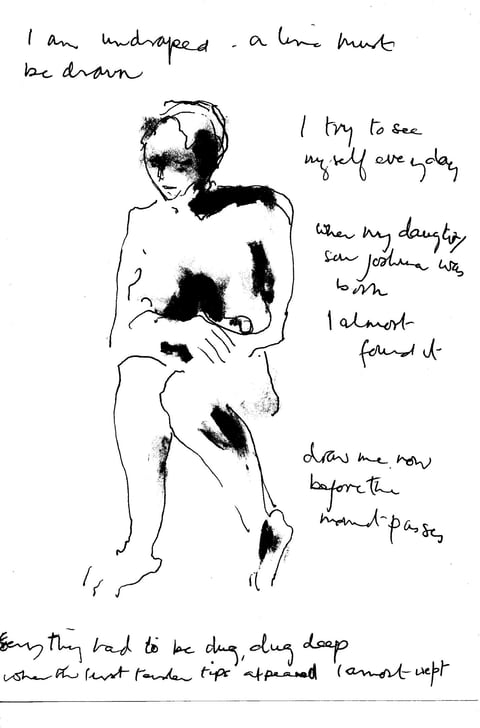 I am undraped. a line must
be drawn
I try to see
myself everyday
when my daughter's
son Joshua was
born
I almost
found it
draw me now
before the
moment passes
everything had to be dug, dug deep
when the first tender tips appeared I almost wept